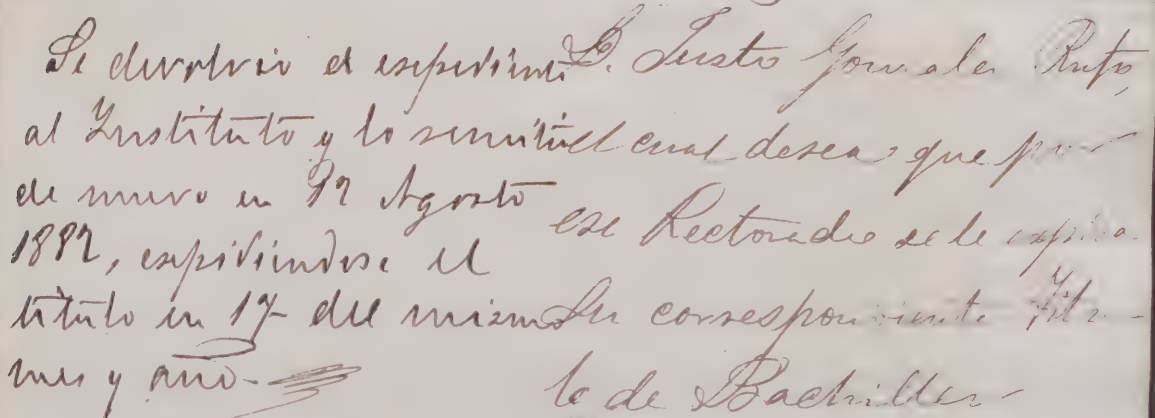 Se devolvió el expediente
al Instituto y lo remitió
de nuevo en 12 Agosto
1882, expidiendose el
titulo en 17 del mismo
mes y año-
D. Justo Gonzalez Rufo,
el cual desea que por
ese Rectorado se le expida
su corresponiente Titu-
lo de Bachiller